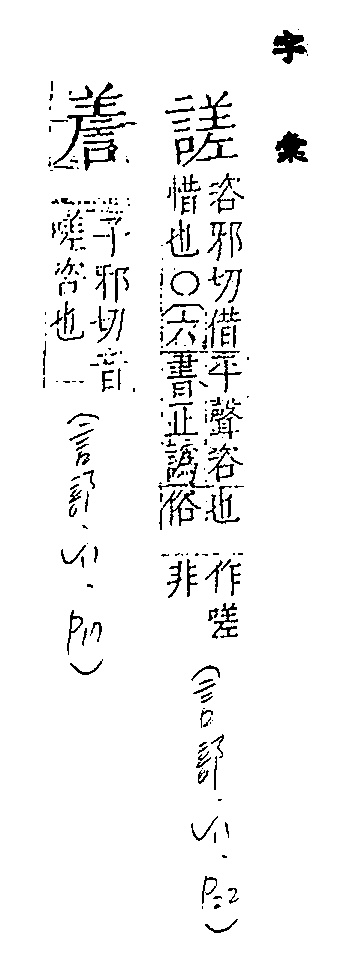 字彙
咨邪切借平聲咨也
惜也〇六書正譌俗
作嗟
非
(言部
子邪切音
嗟咨也
(言部